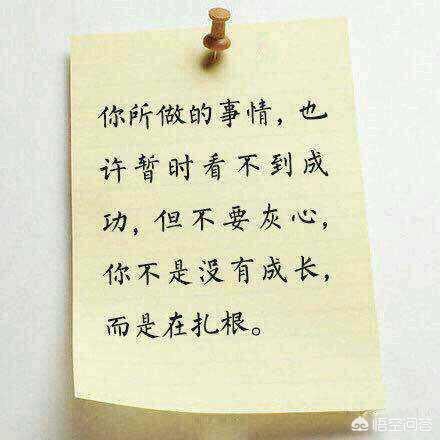 你所做的事情，也
许暂时看不到成
功，但不要灰心，
你不是没有成长，
而是在扎根。
悟空问答